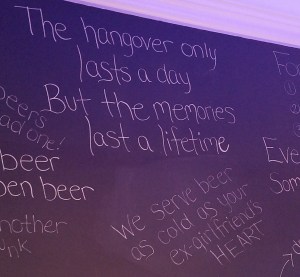 The hangover only
lasts a day
But the memories
last a lifetime
beers
one!
beer
beer
We serve beer
as cold as your
ex-girlfriend's
HEART